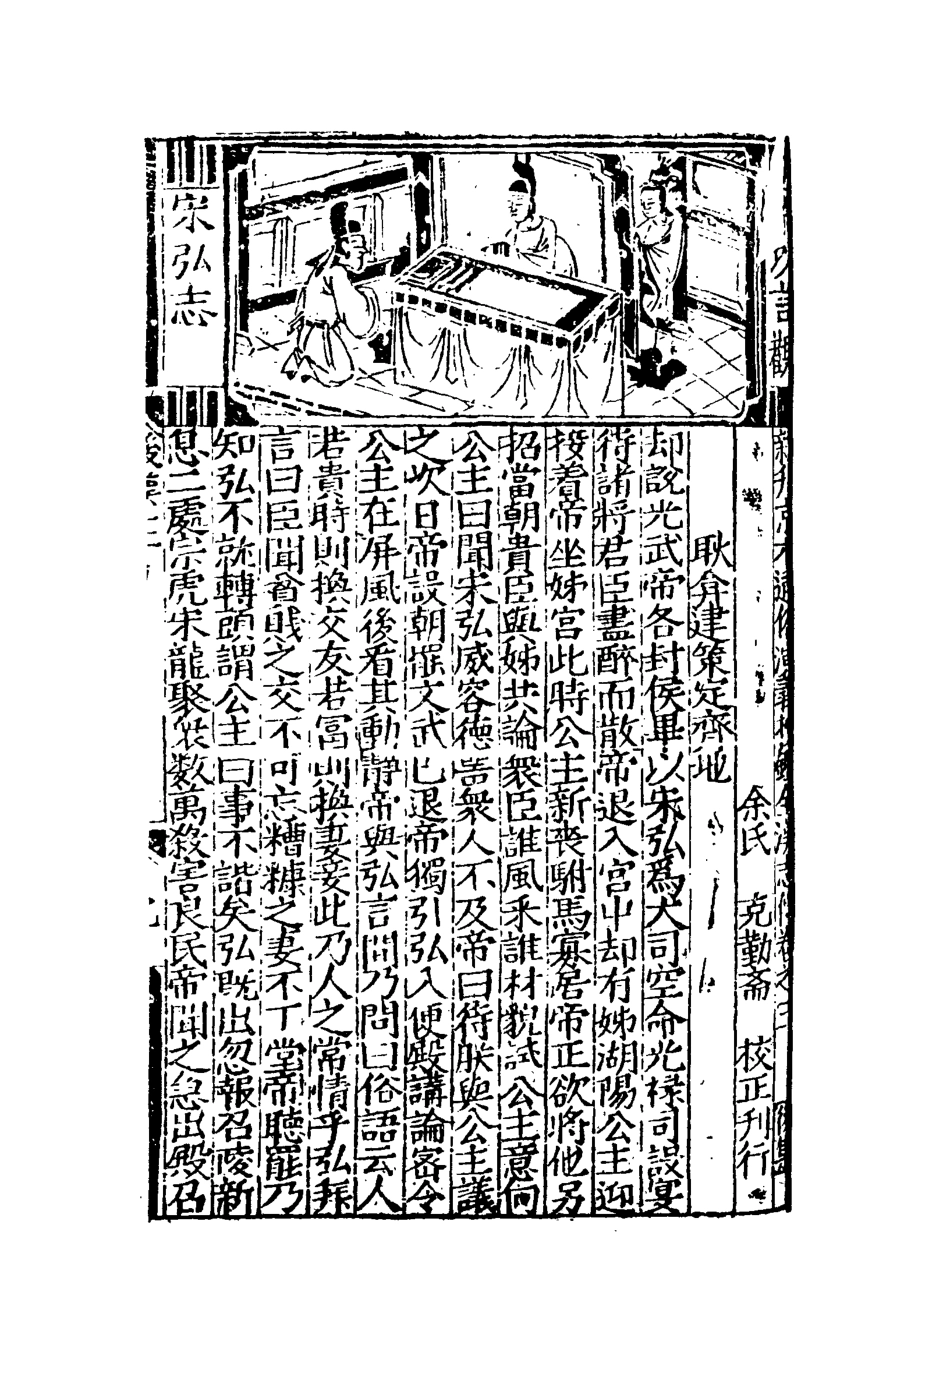 光武觀
宋弘志
新刊京本通俗演義按鑑全漢志傳卷之二
後集
余氏 克勤斋 校正刊行
耿弇建策定齊地
却說光武帝各封侯畢以宋弘爲大司空命光祿司設宴
待諸將君臣盡醉而散帝退入宮中却有姊湖陽公主迎
接着帝坐姊宮此時公主新丧駙馬寡居帝正欲將他另
招當朝貴臣與姊共論衆臣誰風采誰材貌試公主意何
公主曰聞宋弘威容德噐衆人不及帝曰待朕與公主議
之次日帝設朝罷文武已退帝獨引弘入便殿講論密令
公主在屏風後看其動静帝與弘言間乃問曰俗語云人
若貴時則換交友若冨則換妻妾此乃人之常情乎弘拜
言曰臣聞貧賎之交不可忘糟糠之妻不下堂帝聽罷乃
知弘不就轉頭謂公主曰事不諧矣弘既出忽報召陵新
息二處宗虎宋龍聚衆数萬殺害良民帝聞之急出殿召